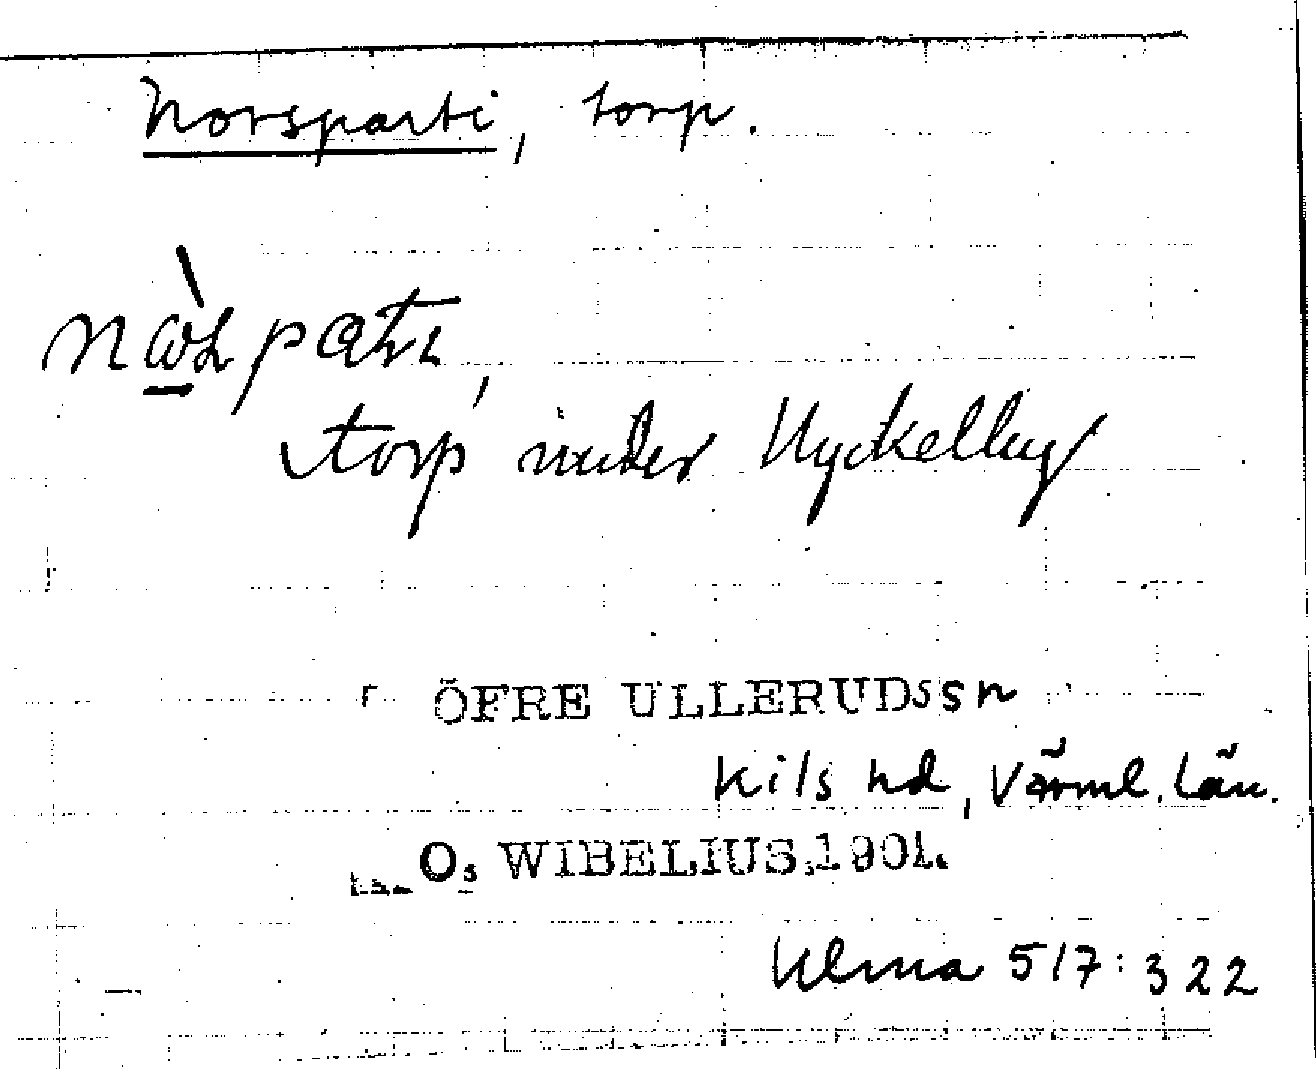 Norsparti, torp.
torp under Nyckelby
ÖFRE ULLERUDssn
Kils hd, Värml. län.
O. WIBELIUS, 1901.
Ulma 517:322